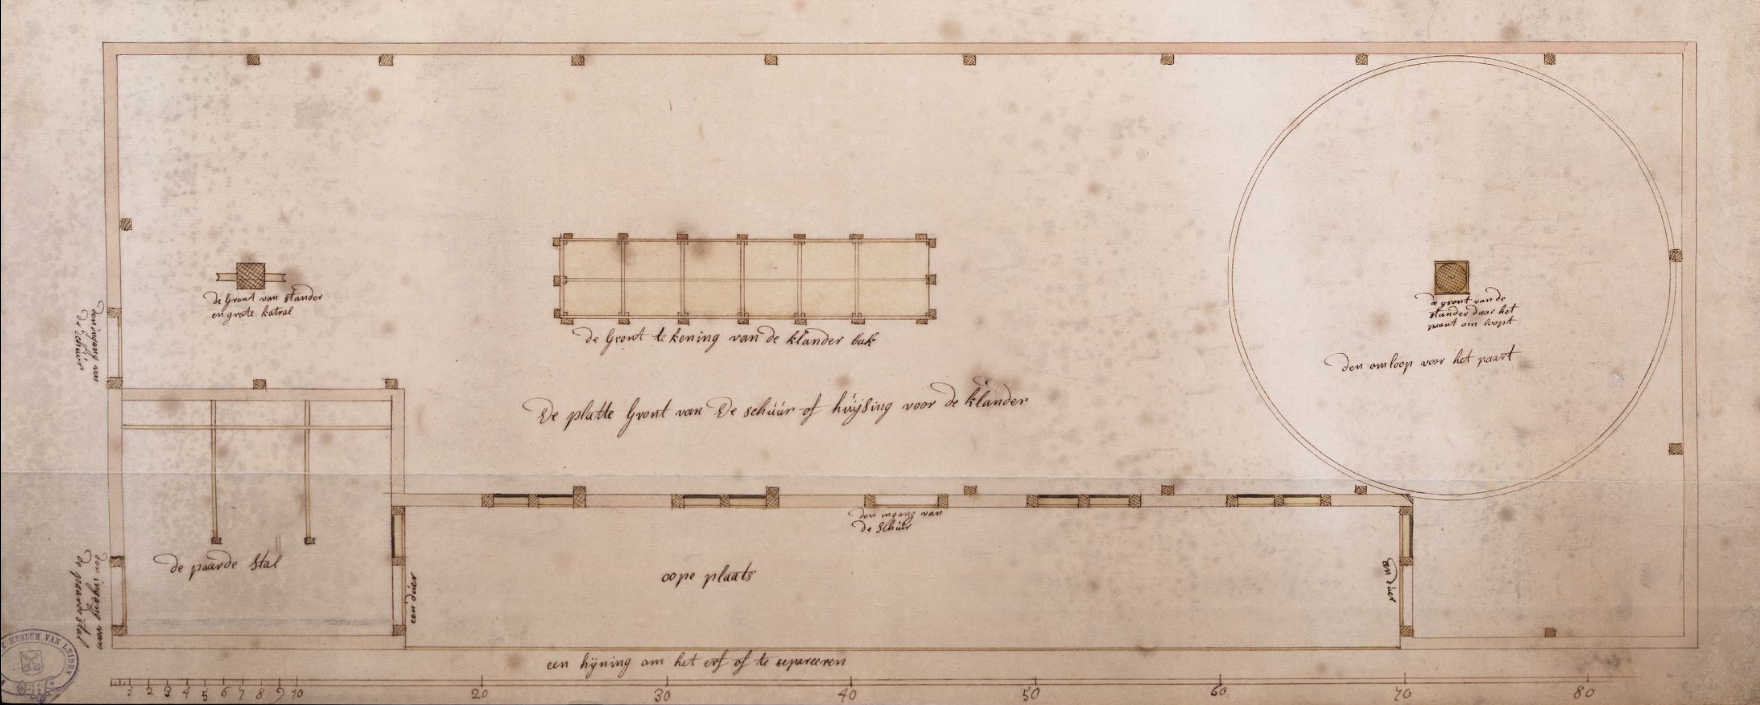 de Gront van stander
en groote katrol
de Gront tekening van de klander bak
de gront van de
stander daar het
paart om loopt
den omloop voor het paart
den ingang van
de schuer
De platte Gront van De schúúr of húÿsing voor de klander
den ingang van
de Schúúr
de paarde stal
oope plaats
een deúer
een deúer
den ingang van
de paarde stal
een hÿning om het erf of te separeeren
MUSEUM VAN LEIDEN
1 2 3 4 5 6 7 8 9 10 20 30 40 50 60 70 80